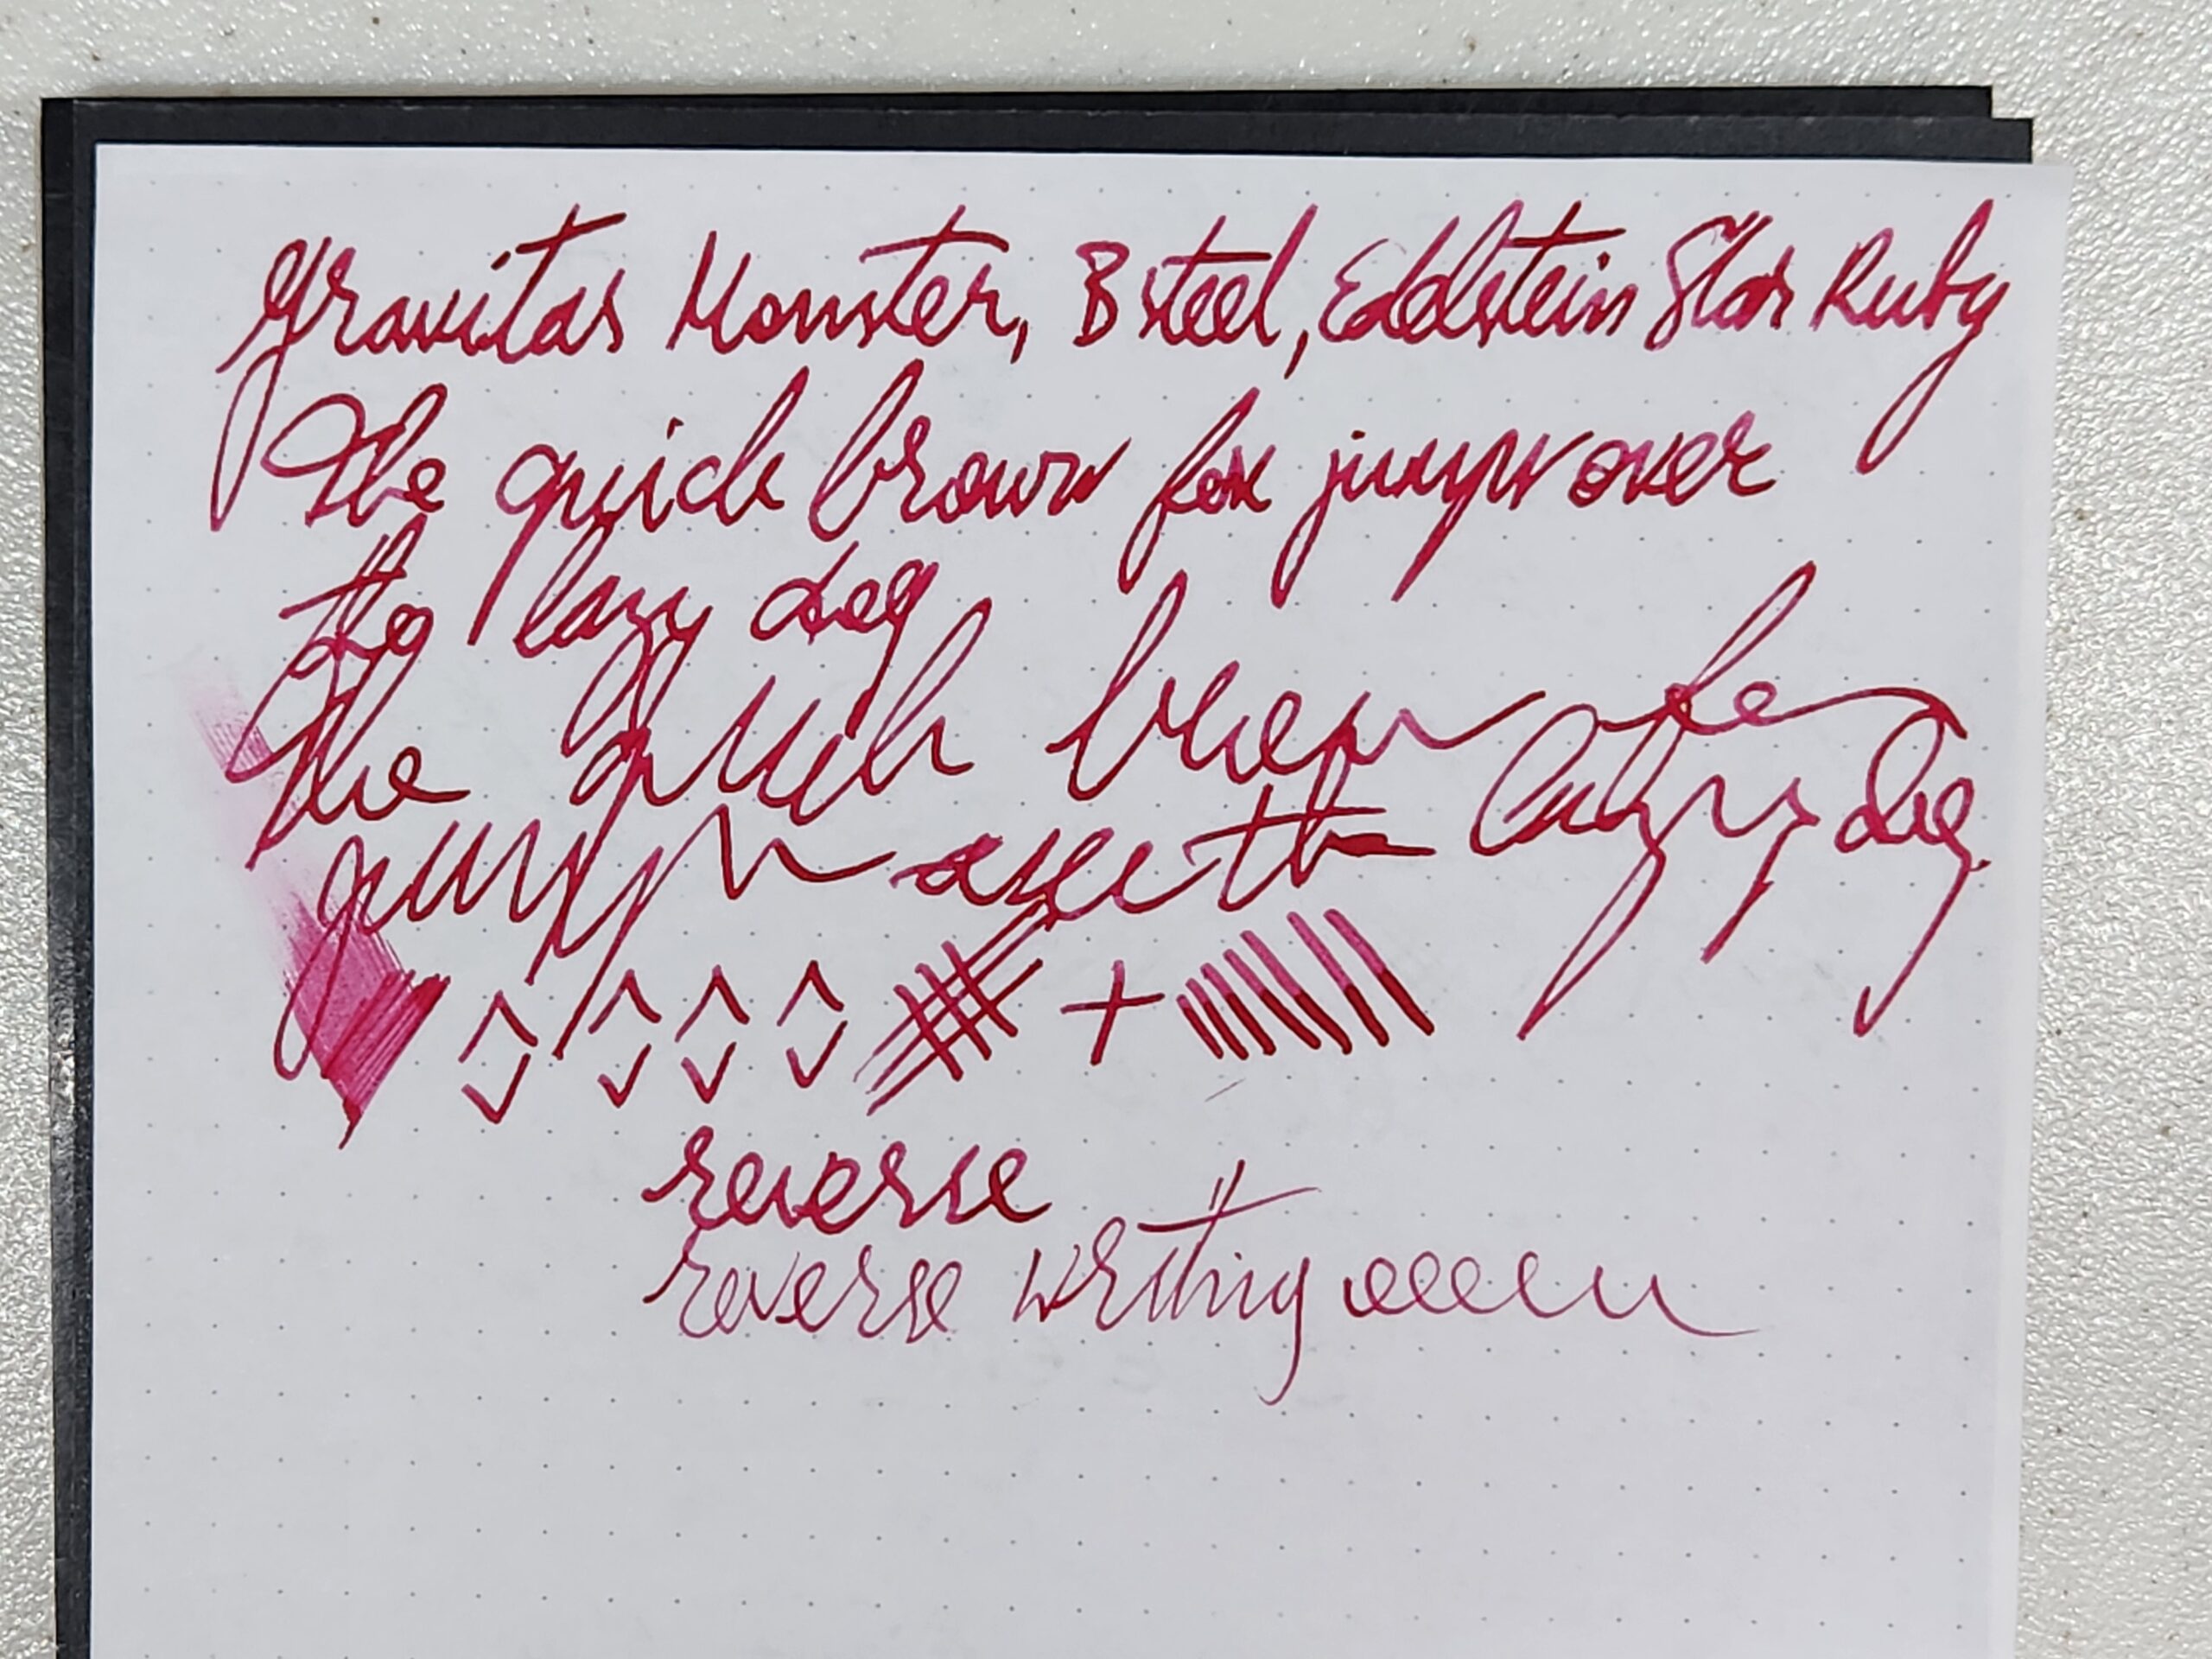 Gravitas Monster, B steel, Edelstein Star Ruby
The quick brown fox jumps over
the lazy dog
The quick brown fox
jumps over the lazy dog
reverse
reverse writing eeeeu